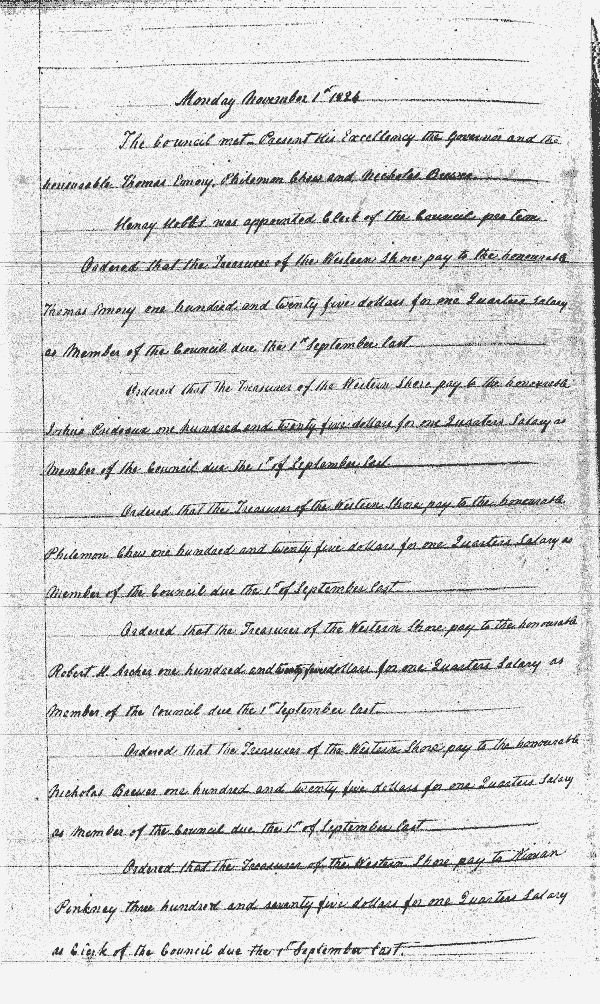 Monday November 1st 1824
The Council met - Present His Excellency the Governor and the
honourable Thomas Emory, Philemon Chew and Nicholas Brewer
Henry Hobbs was appointed Clerk of the Council pro tem
Ordered that the Treasurer of the Western Shore pay to the honourable
Thomas Emory one hundred and twenty five dollars for one Quarters Salary
as Member of the Council due the 1st September last
Ordered that the Treasurer of the Western Shore pay to the honourable
Joshua Prideaux one hundred and twenty five dollars for one Quarters Salary as
Member of the Council due the 1st of September last
Ordered that the Treasurer of the Western Shore pay to the honourable
Philemon Chew one hundred and twenty five dollars for one Quarters Salary as
Member of the Council due the 1st of September last
Ordered that the Treasurer of the Western Shore pay to the honourable
Robert H. Archer one hundred and twenty five dollars for one Quarters Salary as
Member of the Council due the 1st September last
Ordered that the Treasurer of the Western Shore pay to the honourable
Nicholas Brewer one hundred and twenty five dollars for one Quarters Salary
as Member of the Council due the 1st of September last
Ordered that the Treasurer of the Western Shore pay to Ninian
Pinkney three hundred and seventy five dollars for one Quarters Salary
as Clerk of the Council due the 1st September last.